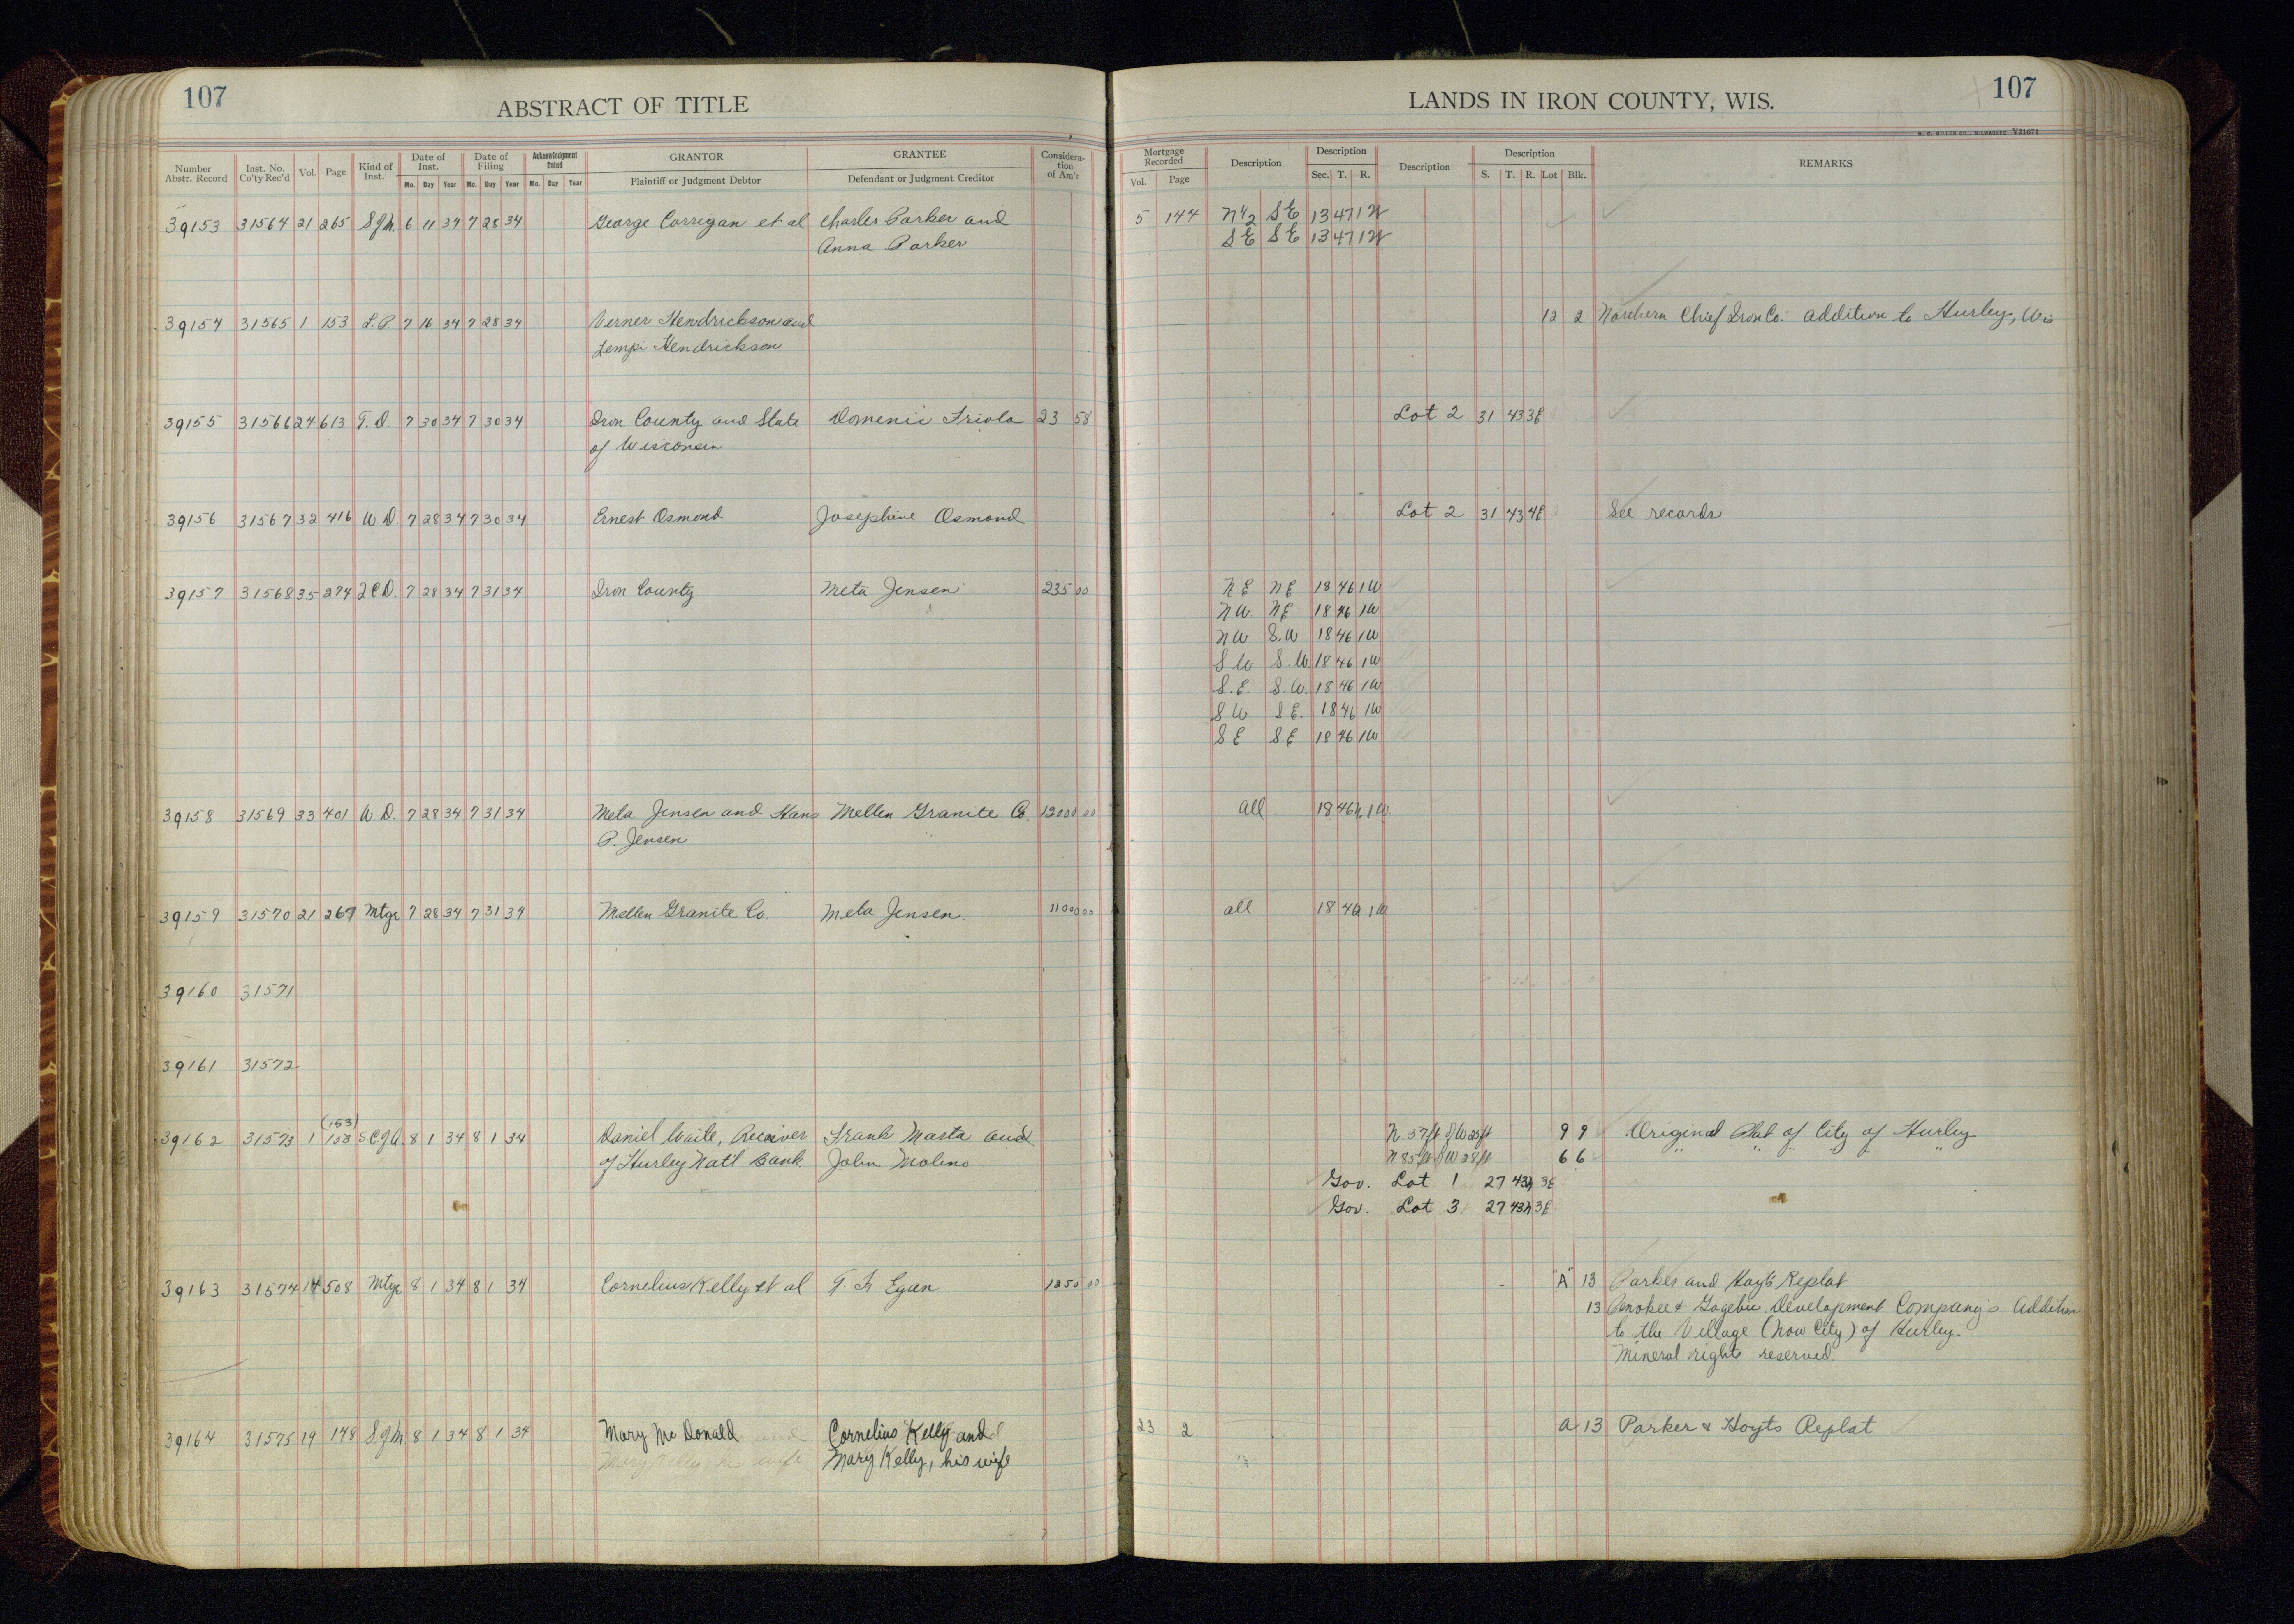 107
ABSTRACT OF TITLE
LANDS IN IRON COUNTY, WIS.
107
H. C. MILLER CO., MILWAUKEE Y21671
Number Abstr. Record Inst. No. Co'ty Rec'd Vol. Page Kind of Inst. Date of Inst. Date of Filing Acknowledgment Dated GRANTOR GRANTEE Considera-tion of Am't Mortgage Recorded Description Description Description Description REMARKS
Mo. Day Year Mo. Day Year Mo. Day Year Plaintiff or Judgment Debtor Defendant or Judgment Creditor Vol. Page Sec. T. R. S. T. R. Lot Blk.
39153 31564 21 265 S.J.M. 6 11 34 7 28 34 George Corrigan et al Charles Parker and 5 144 N 1/2 SE 13 47 1W
Anna Parker SE SE 13 47 1W
39154 31565 1 153 L.P. 7 16 34 7 28 34 Verner Hendrickson and 12 2 Northern Chief Iron Co. addition to Hurley, Wis
Lempi Hendrickson
39155 31566 24 613 T.D. 7 30 34 7 30 34 Iron County and State Domenic Triola 23 58 Lot 2 31 43 3E
of Wisconsin
39156 31567 32 416 W.D. 7 28 34 7 30 34 Ernest Osmond Josephine Osmond Lot 2 31 43 4E See records
39157 31568 35 274 2CD. 7 28 34 7 31 34 Iron County Meta Jensen 235 00 NE NE 18 46 1W
NW. NE 18 46 1W
NW S.W 18 46 1W
SW S.W. 18 46 1W
S.E. S.W. 18 46 1W
SW SE. 18 46 1W
SE SE 18 46 1W
39158 31569 33 401 W.D. 7 28 34 7 31 34 Meta Jensen and Hans Mellen Granite Co. 12000 00 all 18 46N 1W.
P. Jensen
39159 31570 21 267 Mtge 7 28 34 7 31 34 Mellen Granite Co. Meta Jensen. 11000 00 all 18 46 1W
39160 31571
39161 31572
(153)
39162 31573 1 153 S.C.J.A. 8 1 34 8 1 34 Daniel Waite, Receiver Frank Marta and N. 57ft of W 25ft 9 9 Original Plat of City of Hurley
of Hurley Nat'l Bank John Molino N 85ft of W 28ft 6 6 " " " " "
Gov. Lot 1 27 43N 3E
Gov. Lot 3 27 43N 3E
39163 31574 14 508 Mtge 8 1 34 8 1 34 Cornelius Kelly et al T. F. Egan 1250 00 "A" 13 Parker and Hoyt's Replat
13 Penokee & Gogebic Development Company's Addition
to the Village (now City) of Hurley.
Mineral right reserved.
39164 31575 19 148 S.J.M 8 1 34 8 1 34 Mary Mc Donald Cornelius Kelly and 23 2 A 13 Parker & Hoyts Replat
Mary Kelly, his wife Mary Kelly, his wife